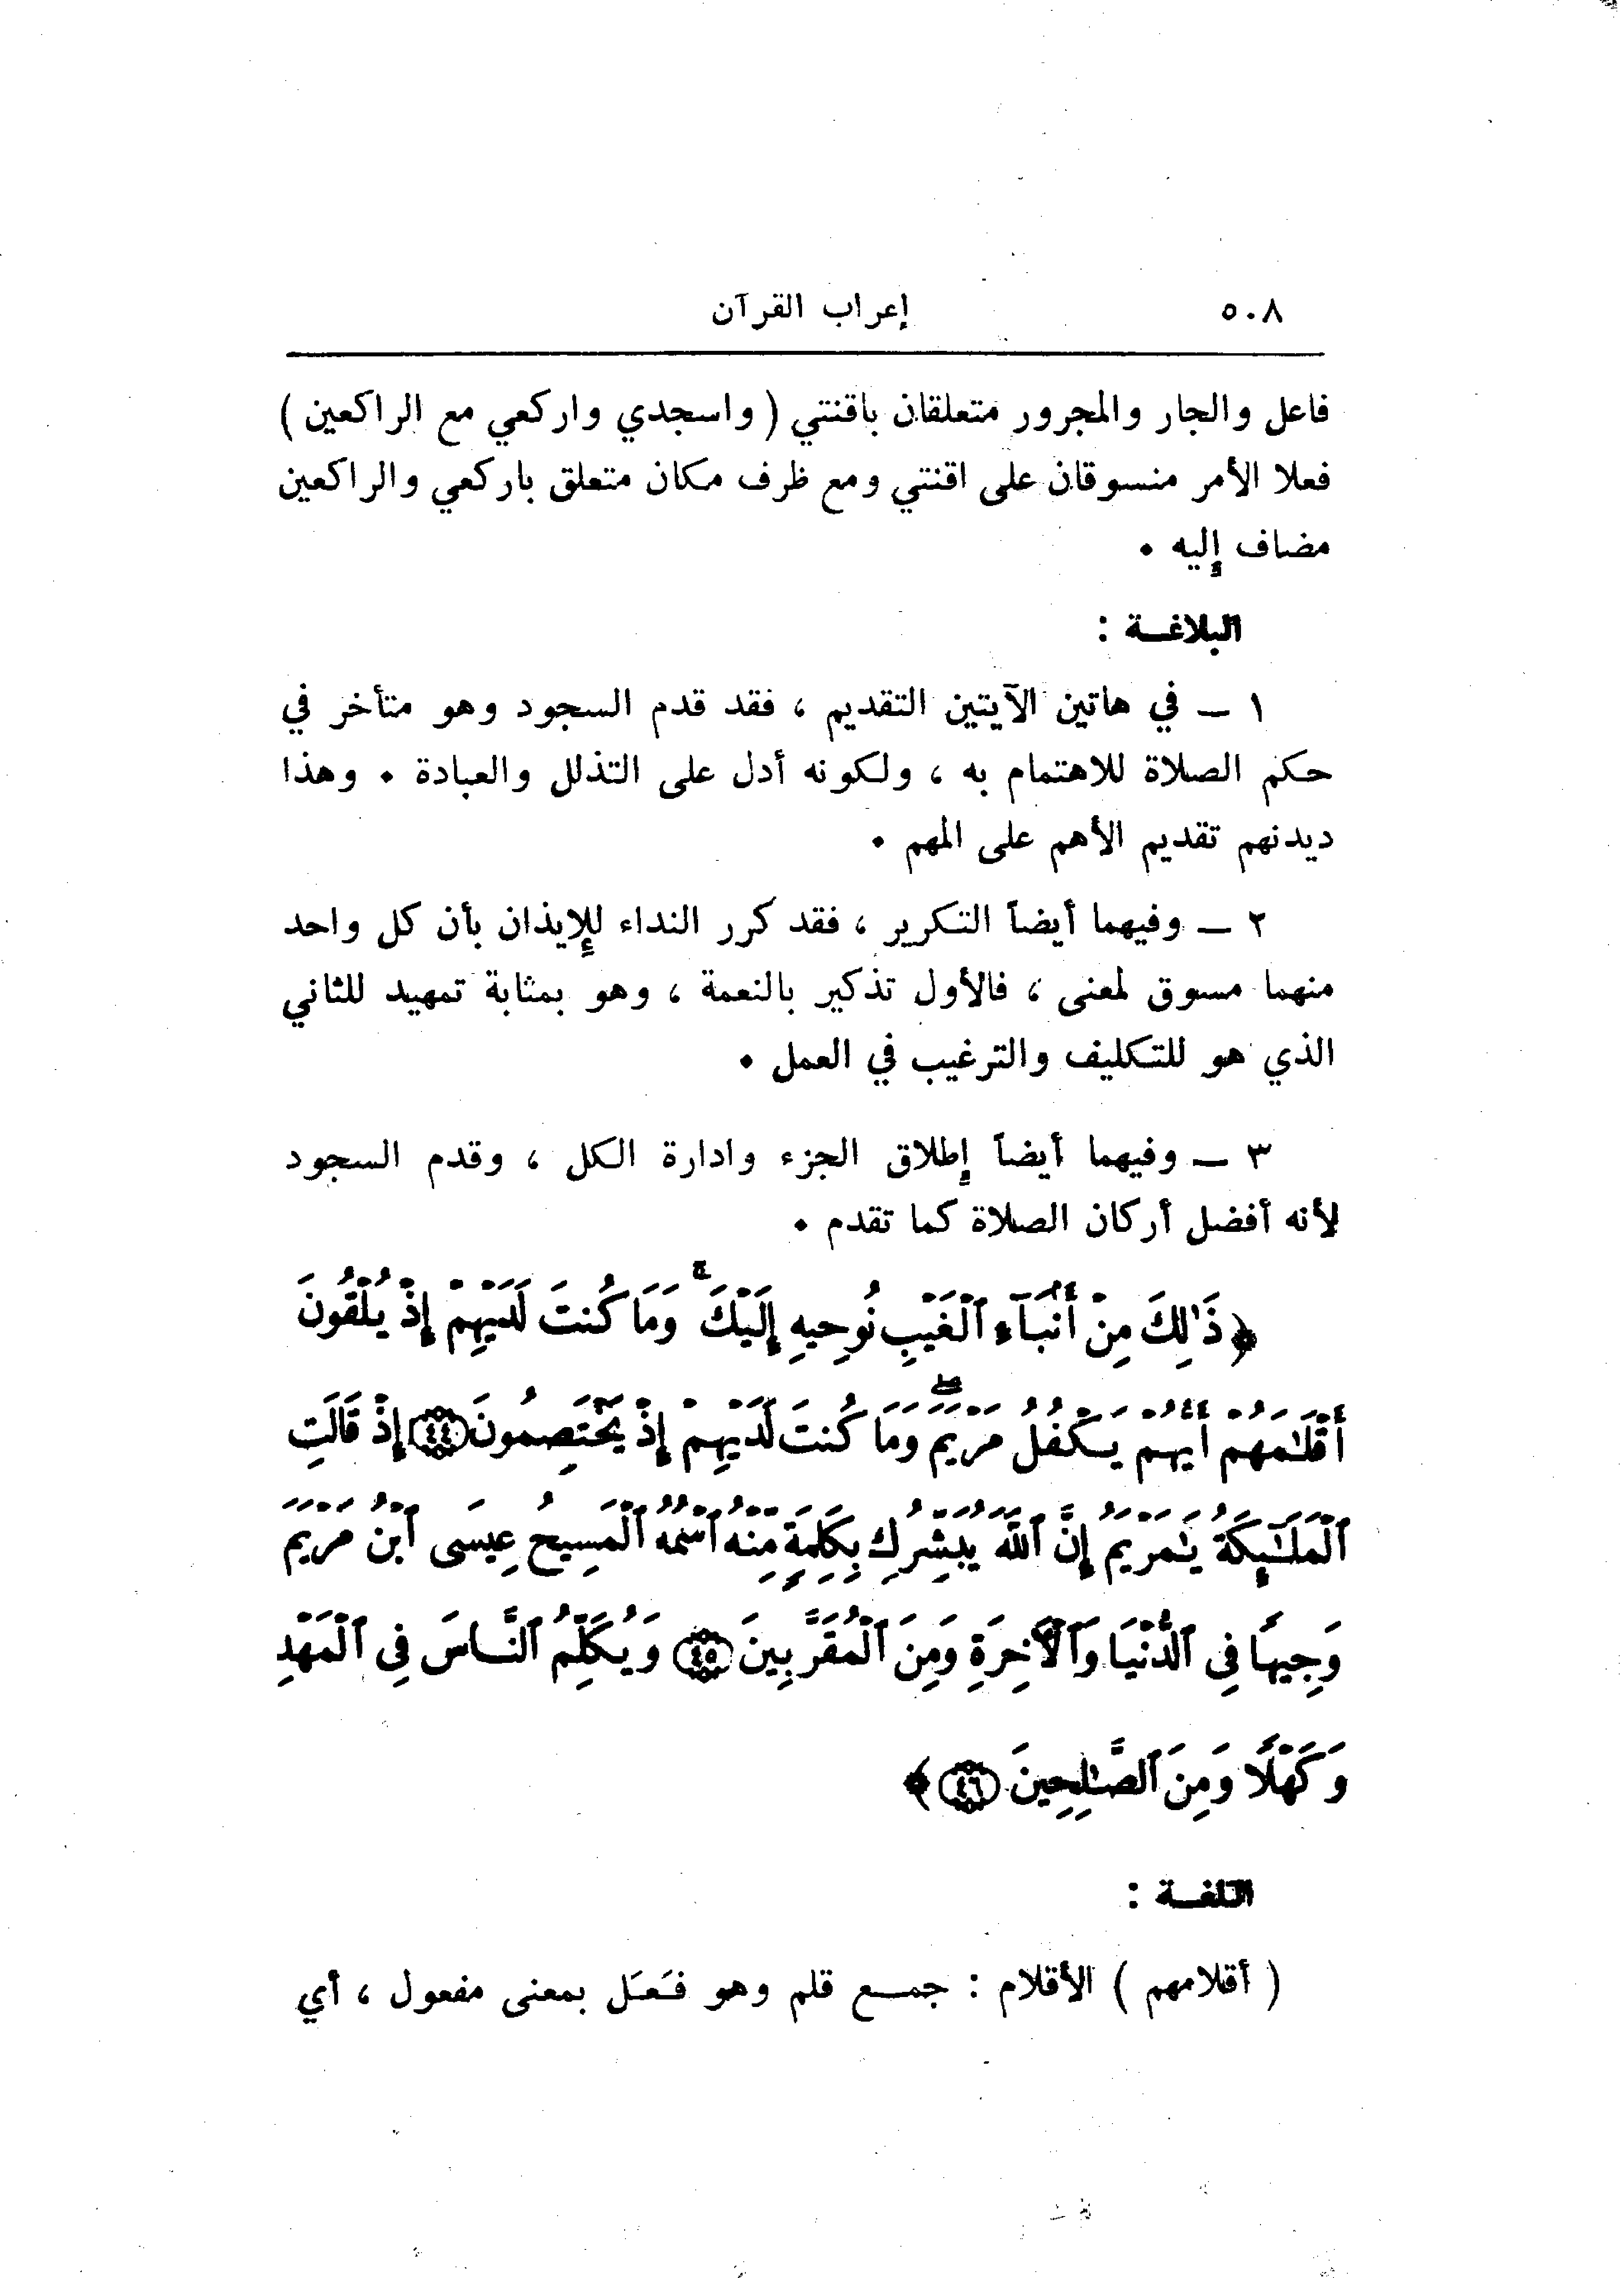 ٥٠٨ إعراب القرآن
فاعل والجار والمجرور متعلقان باقنتي ( واسجدي واركعي مع الراكعين )
فعلا الأمر منسوقان على اقنتي ومع ظرف مكان متعلق باركعي والراكعين
مضاف إليه .
البلاغة :
١ ــ في هاتين الآيتين التقديم ، فقد قدم السجود وهو متأخر في
حكم الصلاة للاهتمام به ، ولكونه أدل على التذلل والعبادة . وهذا
ديدنهم تقديم الأهم على المهم .
٢ ــ وفيهما أيضاً التكرير ، فقد كرر النداء للإيذان بأن كل واحد
منهما مسوق لمعنى ، فالأول تذكير بالنعمة ، وهو بمثابة تمهيد للثاني
الذي هو للتكليف والترغيب في العمل .
٣ ــ وفيهما أيضاً إطلاق الجزء وادارة الكل ، وقدم السجود
لأنه أفضل أركان الصلاة كما تقدم .
﴿ ذَٰلِكَ مِنْ أَنۢبَآءِ ٱلْغَيْبِ نُوحِيهِ إِلَيْكَ ۚ وَمَا كُنتَ لَدَيْهِمْ إِذْ يُلْقُونَ
أَقْلَٰمَهُمْ أَيُّهُمْ يَكْفُلُ مَرْيَمَ ۖ وَمَا كُنتَ لَدَيْهِمْ إِذْ يَخْتَصِمُونَ ﴿٤٤﴾ إِذْ قَالَتِ
ٱلْمَلَٰٓئِكَةُ يَٰمَرْيَمُ إِنَّ ٱللَّهَ يُبَشِّرُكِ بِكَلِمَةٍ مِّنْهُ ٱسْمُهُ ٱلْمَسِيحُ عِيسَى ٱبْنُ مَرْيَمَ
وَجِيهًا فِى ٱلدُّنْيَا وَٱلْأَخِرَةِ وَمِنَ ٱلْمُقَرَّبِينَ ﴿٤٥﴾ وَيُكَلِّمُ ٱلنَّاسَ فِى ٱلْمَهْدِ
وَكَهْلًا وَمِنَ ٱلصَّٰلِحِينَ ﴿٤٦﴾ ﴾
اللغة :
( أقلامهم ) الأقلام : جمع قلم وهو فَعَل بمعنى مفعول ، أي